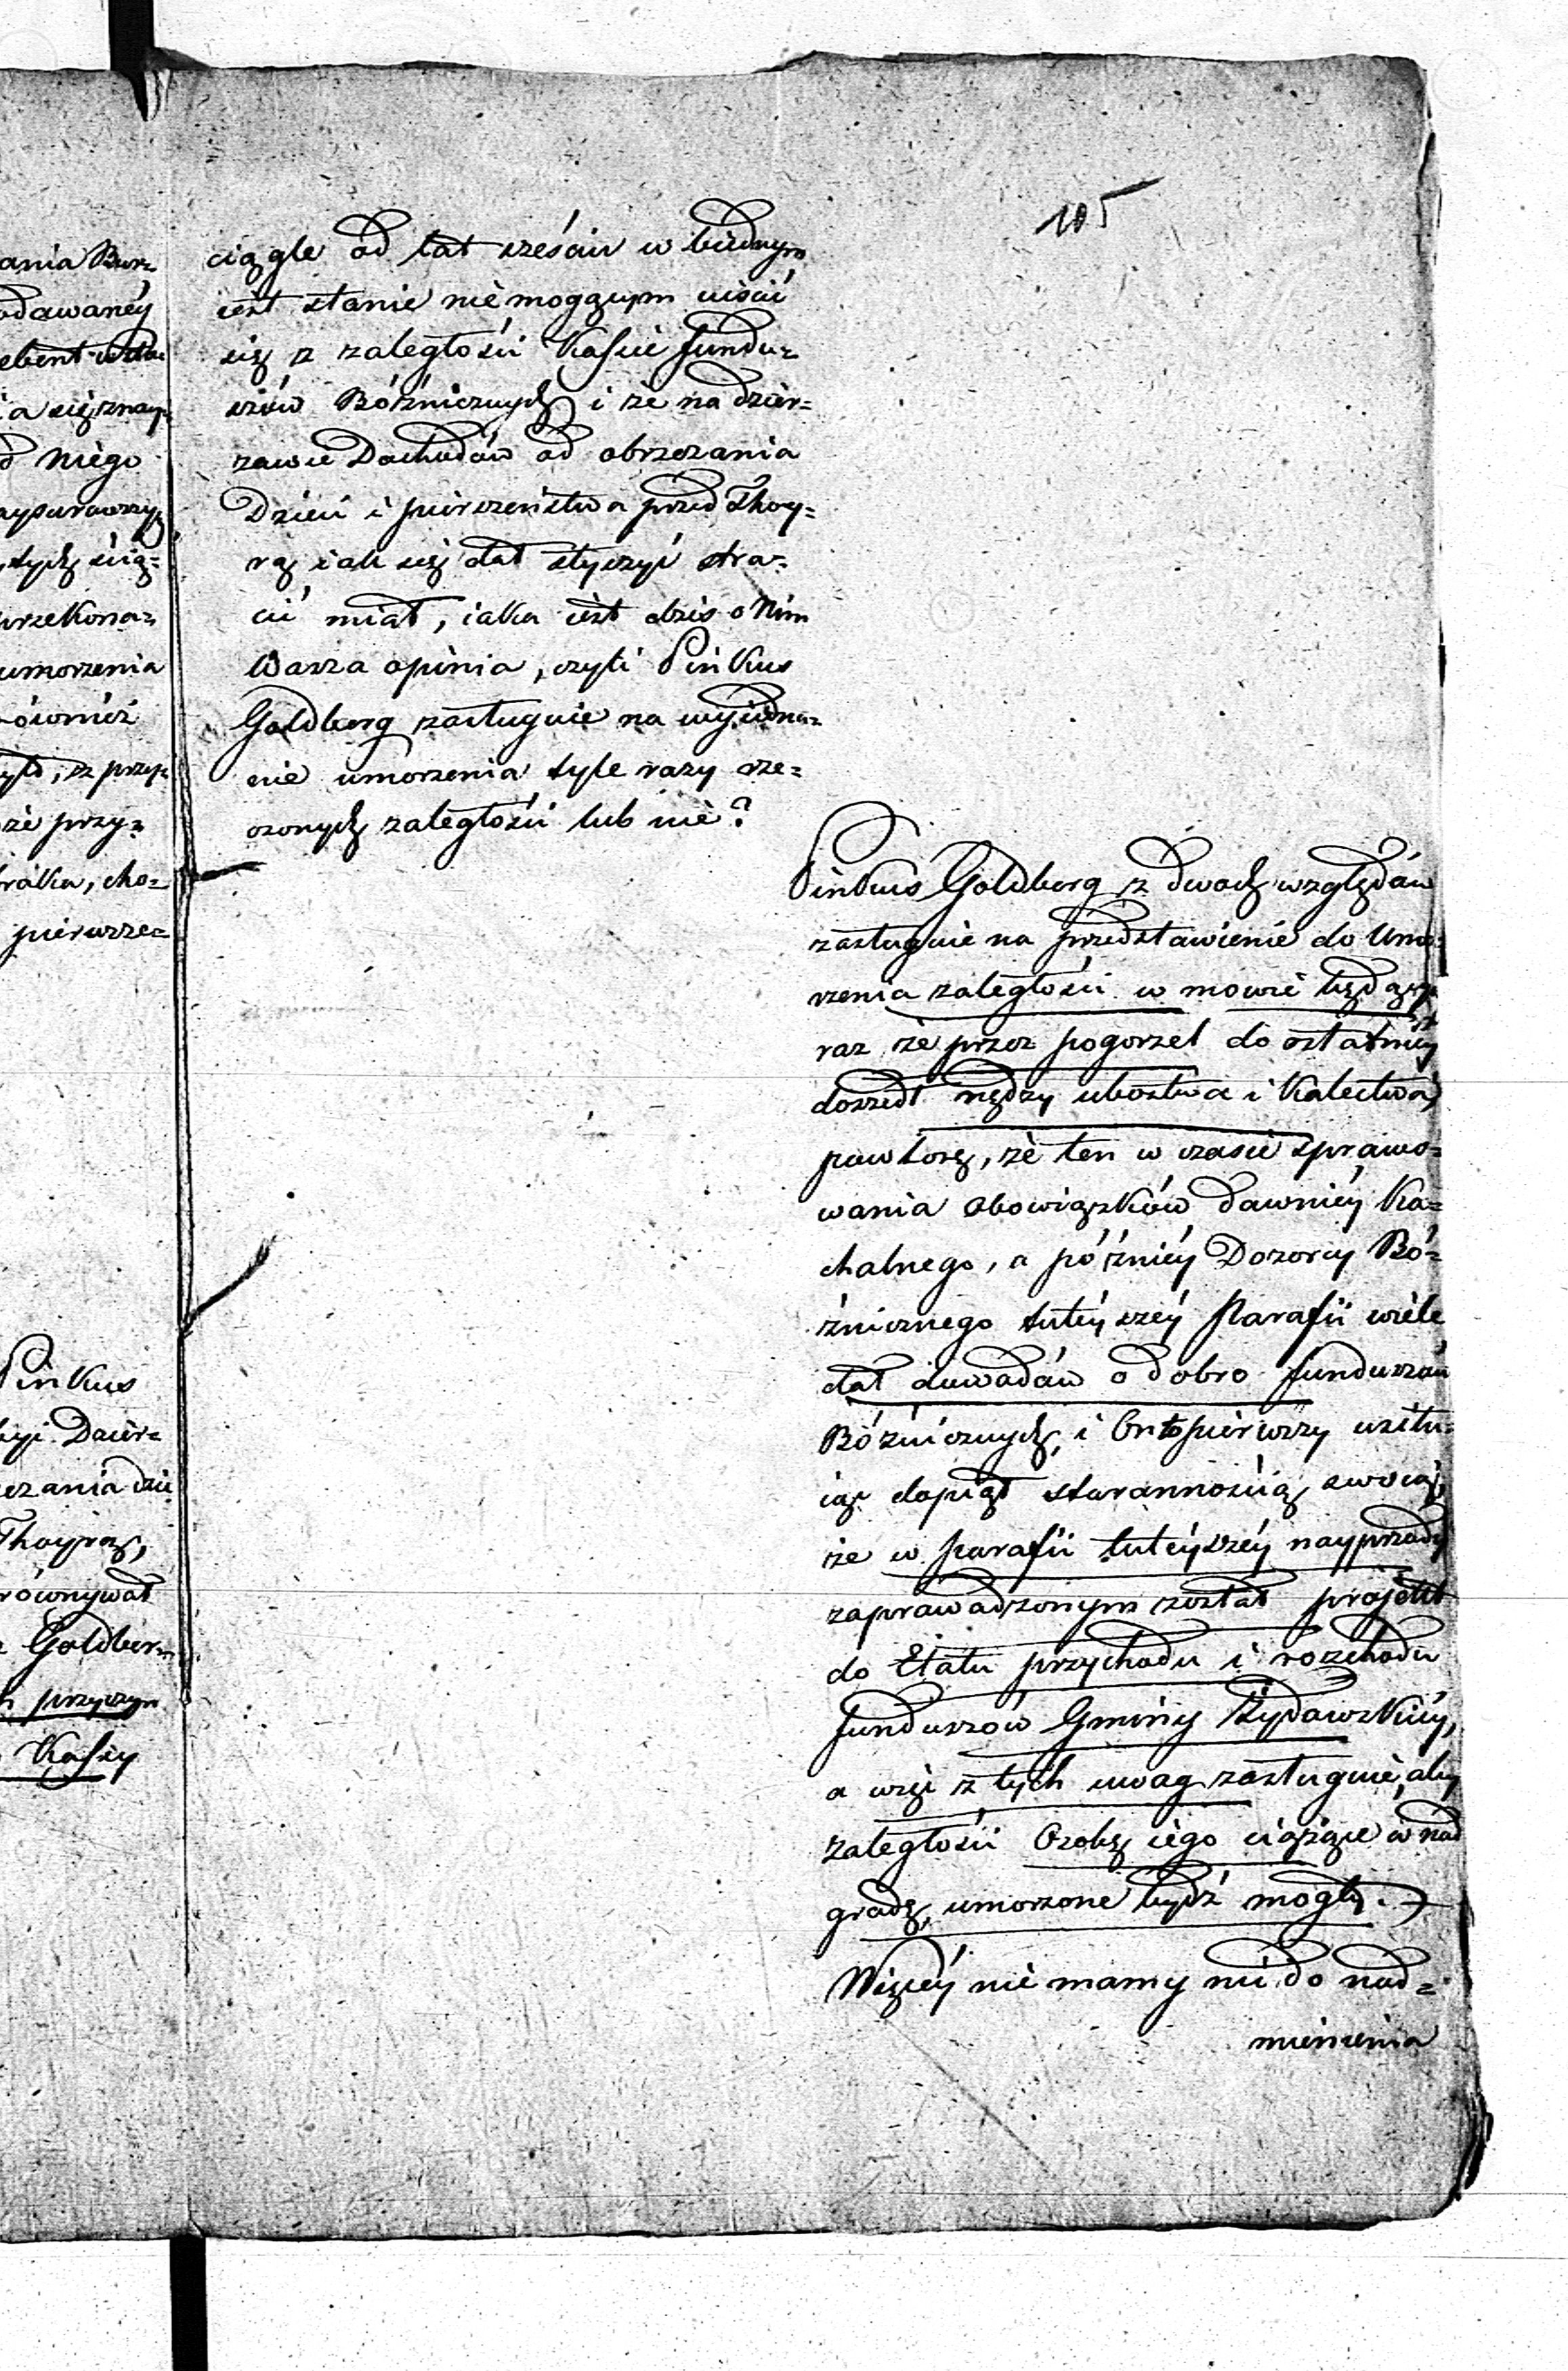 105
ania Bur=
odawanéy
a się znay=
d niego
tych ścią=
przekona=
umorzenia
równiéż
że przy=
pierwsze=
Pinkus
Dzier=
Thoyrą,
równywał
Goldber=
przyczyn
Kassy
ciągle od lat sześciu w biednym
iest stanie niemogącym uiścić
się z zaległości Kassie fundu=
szów Bóżnicznych i że na dzier=
zawie Dochodów od obrzezania
Dzieci i pierszeństwa przed Thoy=
rą iak się dał słyszyć stra=
cić miał, iaka iest dziś o Nim
Wasza opinia, czyli Pinkus
Goldberg zasługuie na wyiedna=
nie umorzenia tyle razy rze=
czonych zaległości lub nie?
Pinkus Goldberg z dwoch względów
zasługuie na przedstawienie do Umo=
rzenia zaległości w mowie będący
raz że przez pogorzel do ostatniéy
doszedł nędzy ubostwa i Kalectwa,
powtorę, że ten w czasie sprawo=
wania obowiązków dawniéy Ka=
halnego, a późniéy Dozorcy Bó=
żnicznego tutéyszéy Parafii wiele
dał dowodów o dobro funduszów
Bóżnicznych, i On to pierwszy usitu=
iąc dopiął starannością swoią,
że w parafii tutéyszéy nayprzody
zaprowadzonym został projekt
do Etatu przychodu i rozchodu
funduszów Gminy Żydowskiéy,
a więc z tych uwag zasługuie, aby
zaległości Osobę iego ciążące w nad
grodę, umorzone bydź mogły.
Więcéy nie mamy nic do nad=
mienienia